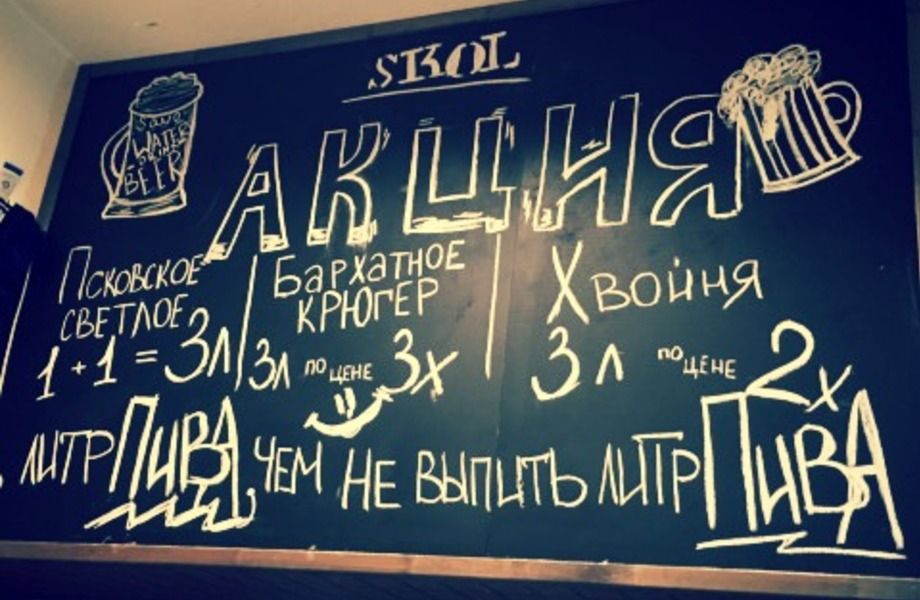 SKOL
SAVE
WATER
DRINK
BEER
АКЦИЯ
Псковское
светлое
1+1=3л
Бархатное
Крюгер
3л по цене 3х
Хвойня
3л по цене 2х
литр Пива чем не выпить литр Пива